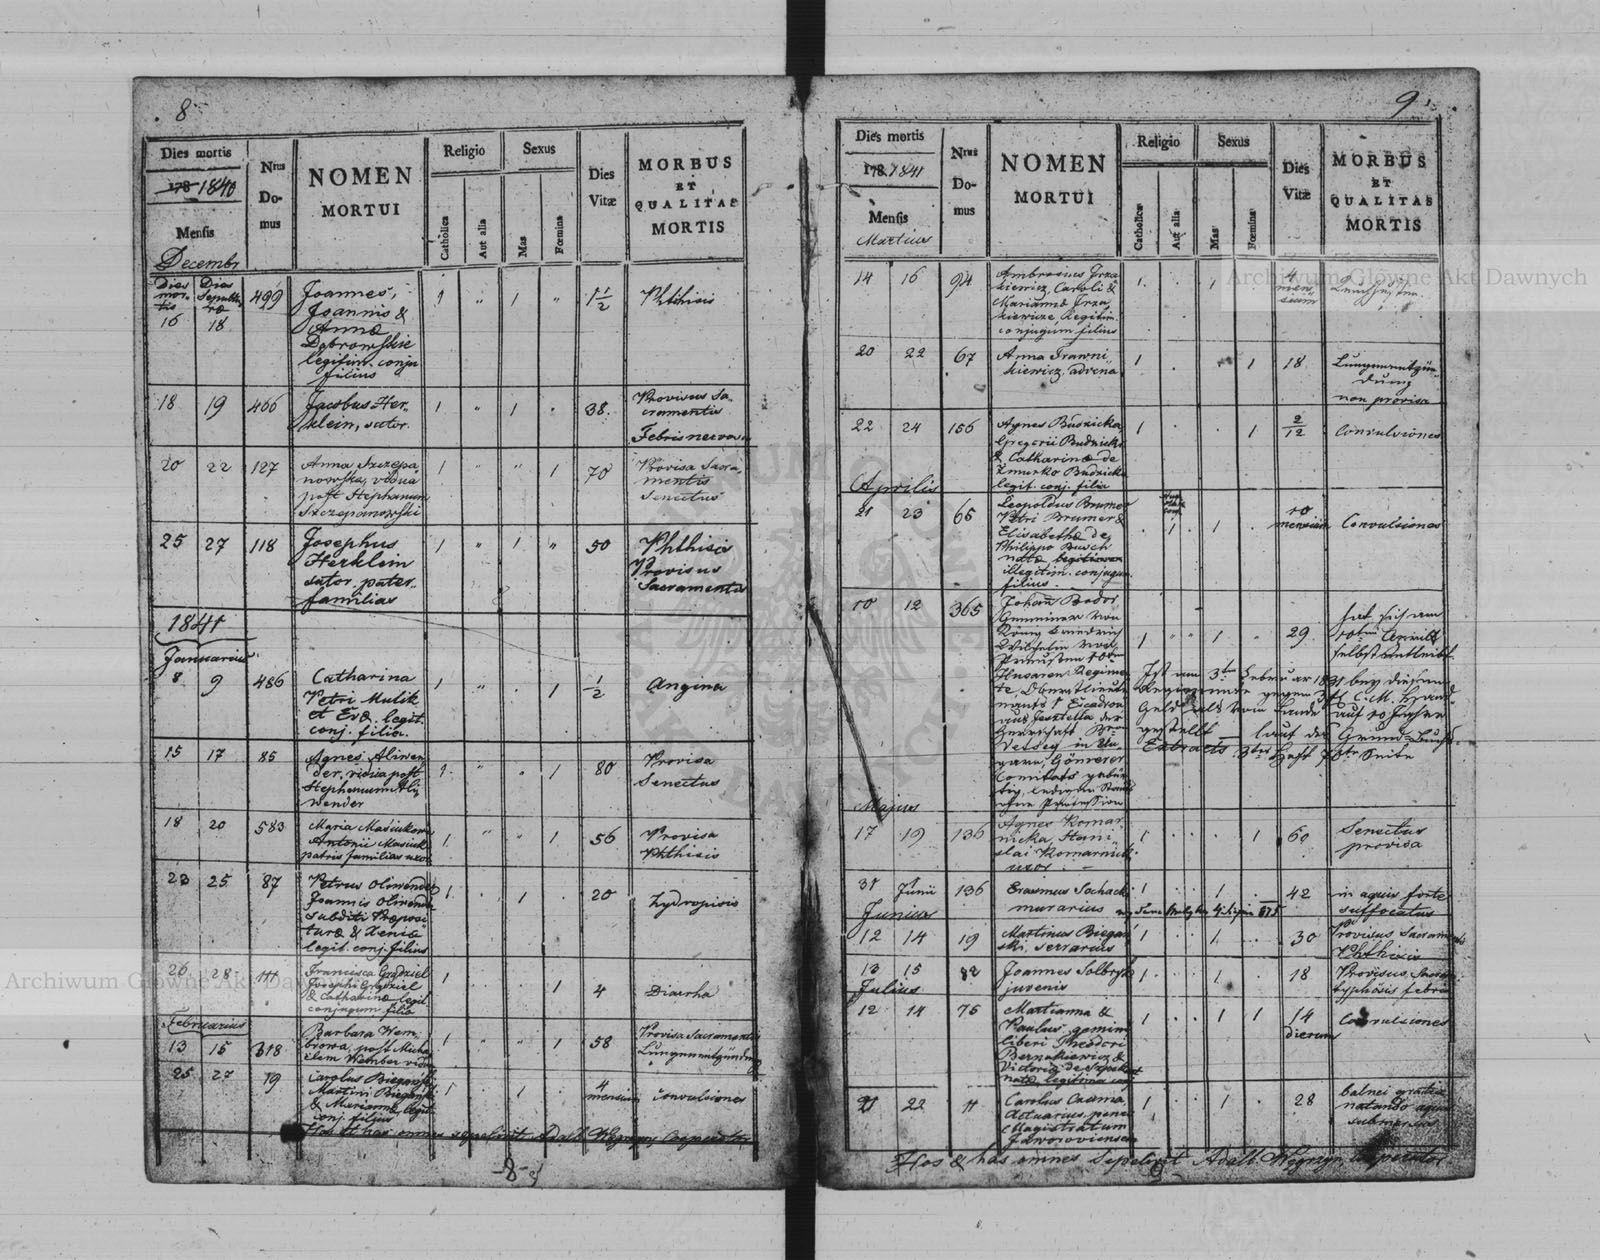 8
Dies mortis
178 1840
Mensis
Decembr
Nrus
Do-
mus
NOMEN
MORTUI
Religio
Catholica
Aut alia
Sexus
Mas
Fœmina
Dies
Vitæ
MORBUS
ET
QUALITAS
MORTIS
Dies
mor-
tis
Dies
Sepultu-
ræ
16 18 499
Joannes,
Joannis &
Annæ
Dąbrowskie
legitim. conju
filius
1 " 1 " 1 1/2
Phthisis
18 19 466
Jacobus Her-
klein, sutor.
1 " 1 " 38.
Provisus Sa-
cramentis
Febris nervosa
20 22 127
Anna Szczepa-
nowska, vidua
post Stephanum
Szczepanowski
1 " " 1 70
Provisa Sacra-
mentis
Senectus
25 27 118
Josephus
Herklein
sutor. pater
familias
1 " 1 " 50
Phthisis
Provisus
Sacramentis
1841
Januarius
8 9 486
Catharina
Petri Mulik
et Evæ. legit.
conj. filia.
1 " . 1 1/2
Angina
15 17 85
Agnes Aliwen
der, vidua post
Stephanum Ali
wender
1 " " 1 80
Provisa
Senectus
18 20 583
Maria
Antonii Masiuk
patris familias uxor
1 " " 1 56
Provisa
Phthisis
23 25 87
Petrus Oliwender
Joannis Oliwender
subditi Præposi
turæ & Xeniæ
legit. conj. filius
1 . 1 . 20
Hydropisis
26 28 111
Francisca Grądziel
Josephi Grądziel
& Catharinæ legit
conjugum filia
1 . . 1 4
Diarrha
Februarius
13 15 318
Barbara Wem-
browa, post Micha-
elem Wember vidua
1 " " 1 58
Provisa Sacramentis
Lungenentzündung
25 27 19
Carolus Biegański
Martini Biegański
& Mariannæ legit
conj. filius
1 . 1 . 4
mensium
Convulsiones
Hos & has omnes sepelivit Adalb. Cooperator
8
9
Dies mortis
178. 1841
Mensis
Martius
Nrus
Do-
mus
NOMEN
MORTUI
Religio
Catholica
Aut alia
Sexus
Mas
Fœmina
Dies
Vitæ
MORBUS
ET
QUALITAS
MORTIS
14 16 94
Ambrosius Trza
kiewicz, Caroli &
Mariannæ Trza
kiewicze legitim.
conjugum filius
1 . 1 . 4
men-
sium
20 22 67
Anna Trawni
kiewicz, advena
1 . . 1 18
Lungenentzün-
dung
non provisa
22 24 156
Agnes Budzicka
Gregorii Budzicki
& Catharinæ de
Zmurko Budzicka
legit. conj. filia
1 . . 1 2/12
Convulsiones
Aprilis
21 23 65
Leopoldus Brumer
Petri Brumer &
Elisabethæ de
Philippo Busch
natæ
illegitim. conjugum
filius
. 1 1 . 10
mensium
Convulsiones
10 12 365
Johann Bodor
Gemeiner von
König Friedrich
Wilhelm von
Preussen 10ten
Husaren Regimen
te, Oberstlieute
nants 1 Escadron
aus der
Herrschaft
in Un
garn, Gömörer
Comitats gebür
tig, ledigen Stands
ohne Profession
1 " " 1 " 29
hat sich am
10ten April
selbst entleibt.
Ist am 3ten Februar 1831 bey diesem
Regimente gegen 3 fl C.M. Hand-
geld vom Lande auf 10 Jahre
gestellt — laut des Grund-Buchs-
Extracts 3ter Heft 7bte Seite
Majus
17 19 136
Agnes Komar
nicka, Stani
slai Komarnicki
uxor. —
1 . . . 1 60
Senectus
provisa
31 Junii 136
Erasmus Sochacki
murarius
1 . 1 . 42
in aquis forte
suffocatus
Junius
12 14 19
Martinus Biegań
ski, serrarius
1 . 1 . 30
Provisus Sacramentis
Phthisis
13 15 82
Joannes Solbryk
juvenis
1 . 1 . 18
Provisus, Sacra
typhosis febris
Julius
12 14 75
Martianna &
Paulus, gemini
liberi Theodori
Bernakiewicz &
Victoriæ de
natæ, legitima conj
1 . 1 1 14
dierum
Convulsiones
21 22 11
Carolus Czarna
Actuarius penes
Magistratum
Jaworoviensem
1 . 1 . 28
balnei gratia
natando aqua
submersus
Hos & has omnes Sepelivit Adalb. Cooperator
9
Archiwum Główne Akt Dawnych
Archiwum Główne Akt Dawnych